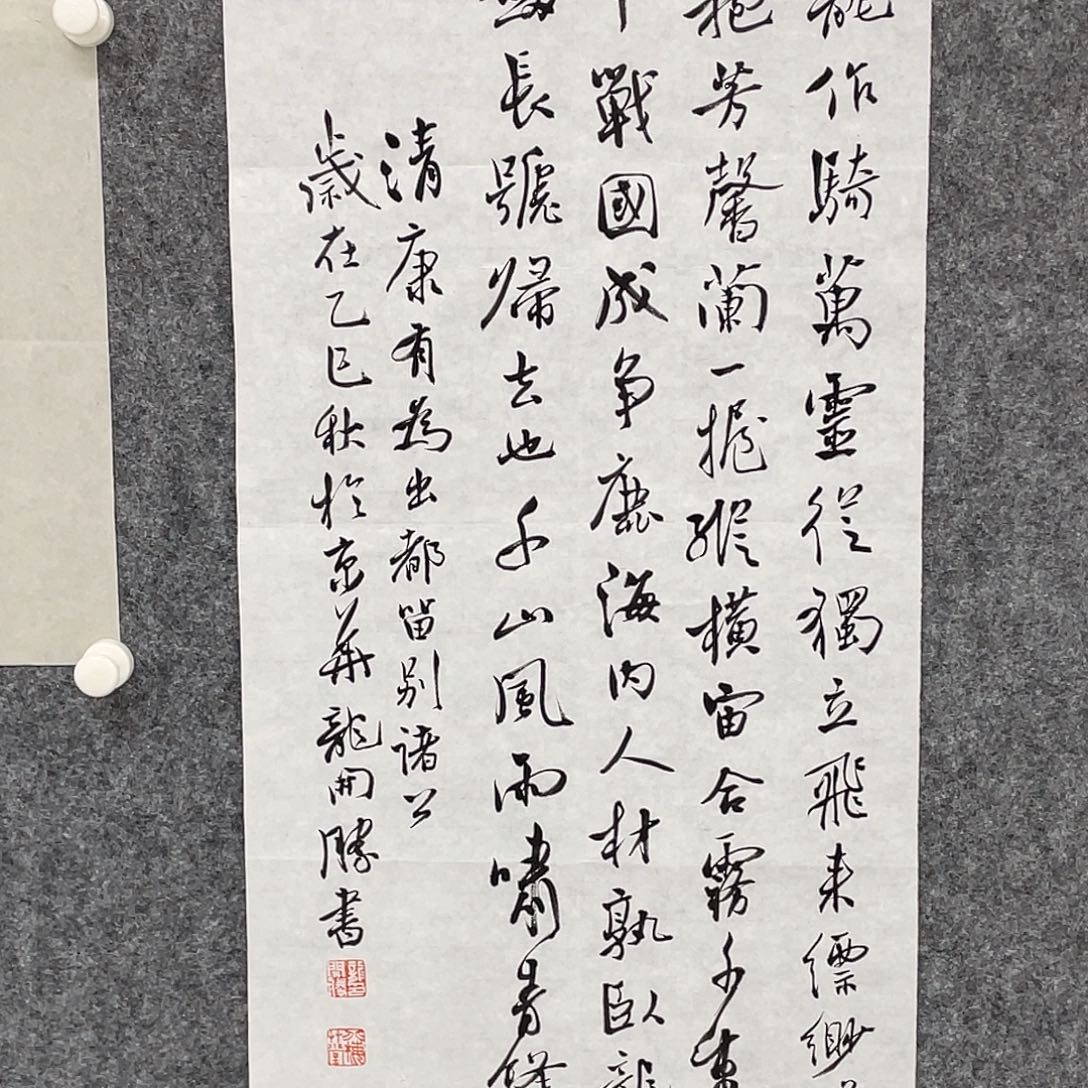 龍作騎萬靈從獨立飛来縹緲
抱芳馨蘭一握縱橫宙合霧千重
中戰國成争鹿海内人材孰臥龍
劍長號歸去也千山風雨嘯青鋒
清康有為出都留别諸公
歲在乙巳秋於京華龍開勝書